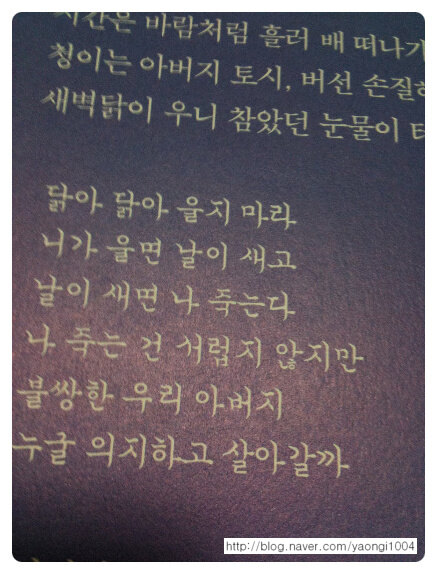 시간은 바람처럼 흘러 배 떠나기
청이는 아버지 토시, 버선 손질하
새벽닭이 우니 참았던 눈물이 터
닭아 닭아 울지 마라
니가 울면 날이 새고
날이 새면 나 죽는다
나 죽는 건 서럽지 않지만
불쌍한 우리 아버지
누굴 의지하고 살아갈까
http://blog.naver.com/yaongi1004